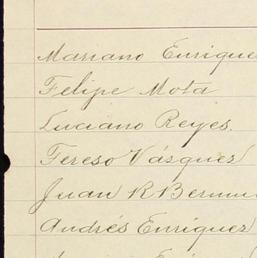 Mariano Enrique
Felipe Mota
Luciano Reyes.
Tereso Vásquez
Juan R Bermu
Andrés Enríquez